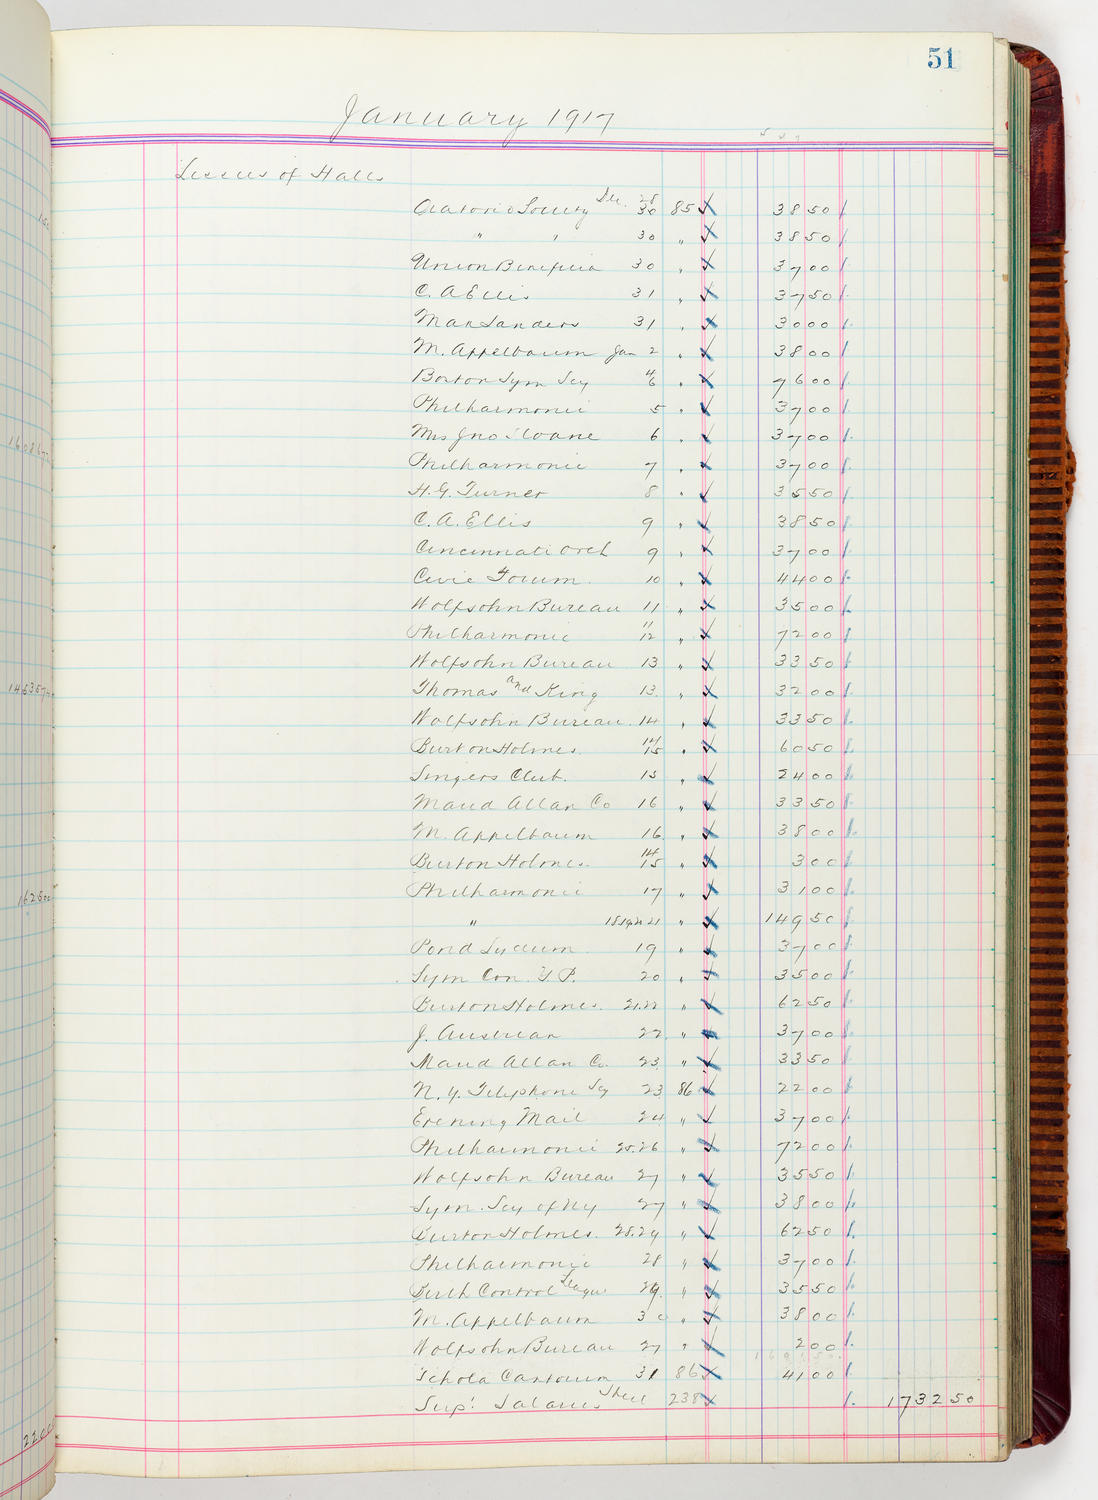 51
January 1917
Lessees of Halls
Oratorio Society Dec. 28 30 85 3850
" " 30 " 3850
Union Beneficia 30 " 3700
C. A Ellis 31 " 3750
Max Sanders 31 " 3000
M. Appelbaum Jan 2 " 3800
Boston Sym Scy 4 6 " 7600
Philharmonic 5 " 3700
Mrs Jno Sloane 6 " 3700
Philharmonic 7 " 3700
H. G. Turner 8 " 3550
C. A. Ellis 9 " 3850
Cincinnati Orch 9 " 3700
Civic Forum. 10 " 4400
Wolfsohn Bureau 11 " 3500
Philharmonic 11 12 " 7200
Wolfsohn Bureau 13 " 3350
Thomas and King 13. " 3200
Wolfsohn Bureau. 14 " 3350
Burton Holmes. 14 15 " 6050
Singers Club. 15 " 2400
Maud Allan Co 16 " 3350
M. Appelbaum 16. " 3800
Burton Holmes. 14 15 " 300
Philharmonic 17 " 3100
" 18 19 20 21 " 14950
Pond Lyceum 19 " 3700
Sym Con. Y. P. 20 " 3500
Burton Holmes. 21.22 " 6250
J. Austrian 22 " 3700
Maud Allan Co. 23. " 3350
N. Y. Telephone Scy 23 86 2200
Evening Mail 24 " 3700
Philharmonic 25.26 " 7200
Wolfsohn Bureau 27 " 3550
Sym. Scy of NY 27 " 3800
Burton Holmes. 28.29 " 6250
Philharmonic 28 " 3700
Birth Control League 29. " 3550
M. Appelbaum 30 " 3800
Wolfsohn Bureau 27 " 200
Schola Cantorum 31 86 4100
Supt. Salaries Steel 238 173250